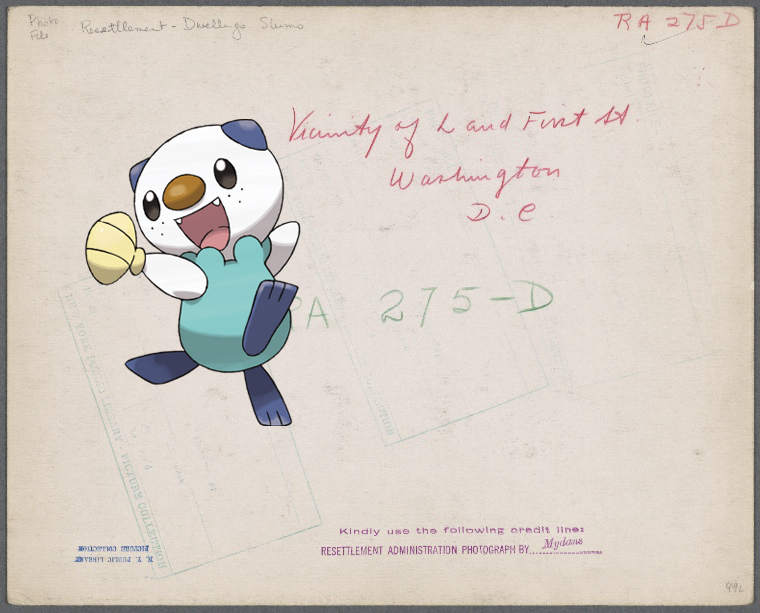 Photo
File
Resettlement - Dwellings. Slums
RA 275-D
Vicinity of L and First St.
Washington
D. C
RA 275-D
NEW YORK PUBLIC LIBRARY · PICTURE COLLECTION
Kindly use the following credit line:
RESETTLEMENT ADMINISTRATION PHOTOGRAPH BY Mydans
N. Y. PUBLIC LIBRARY
PICTURE COLLECTION